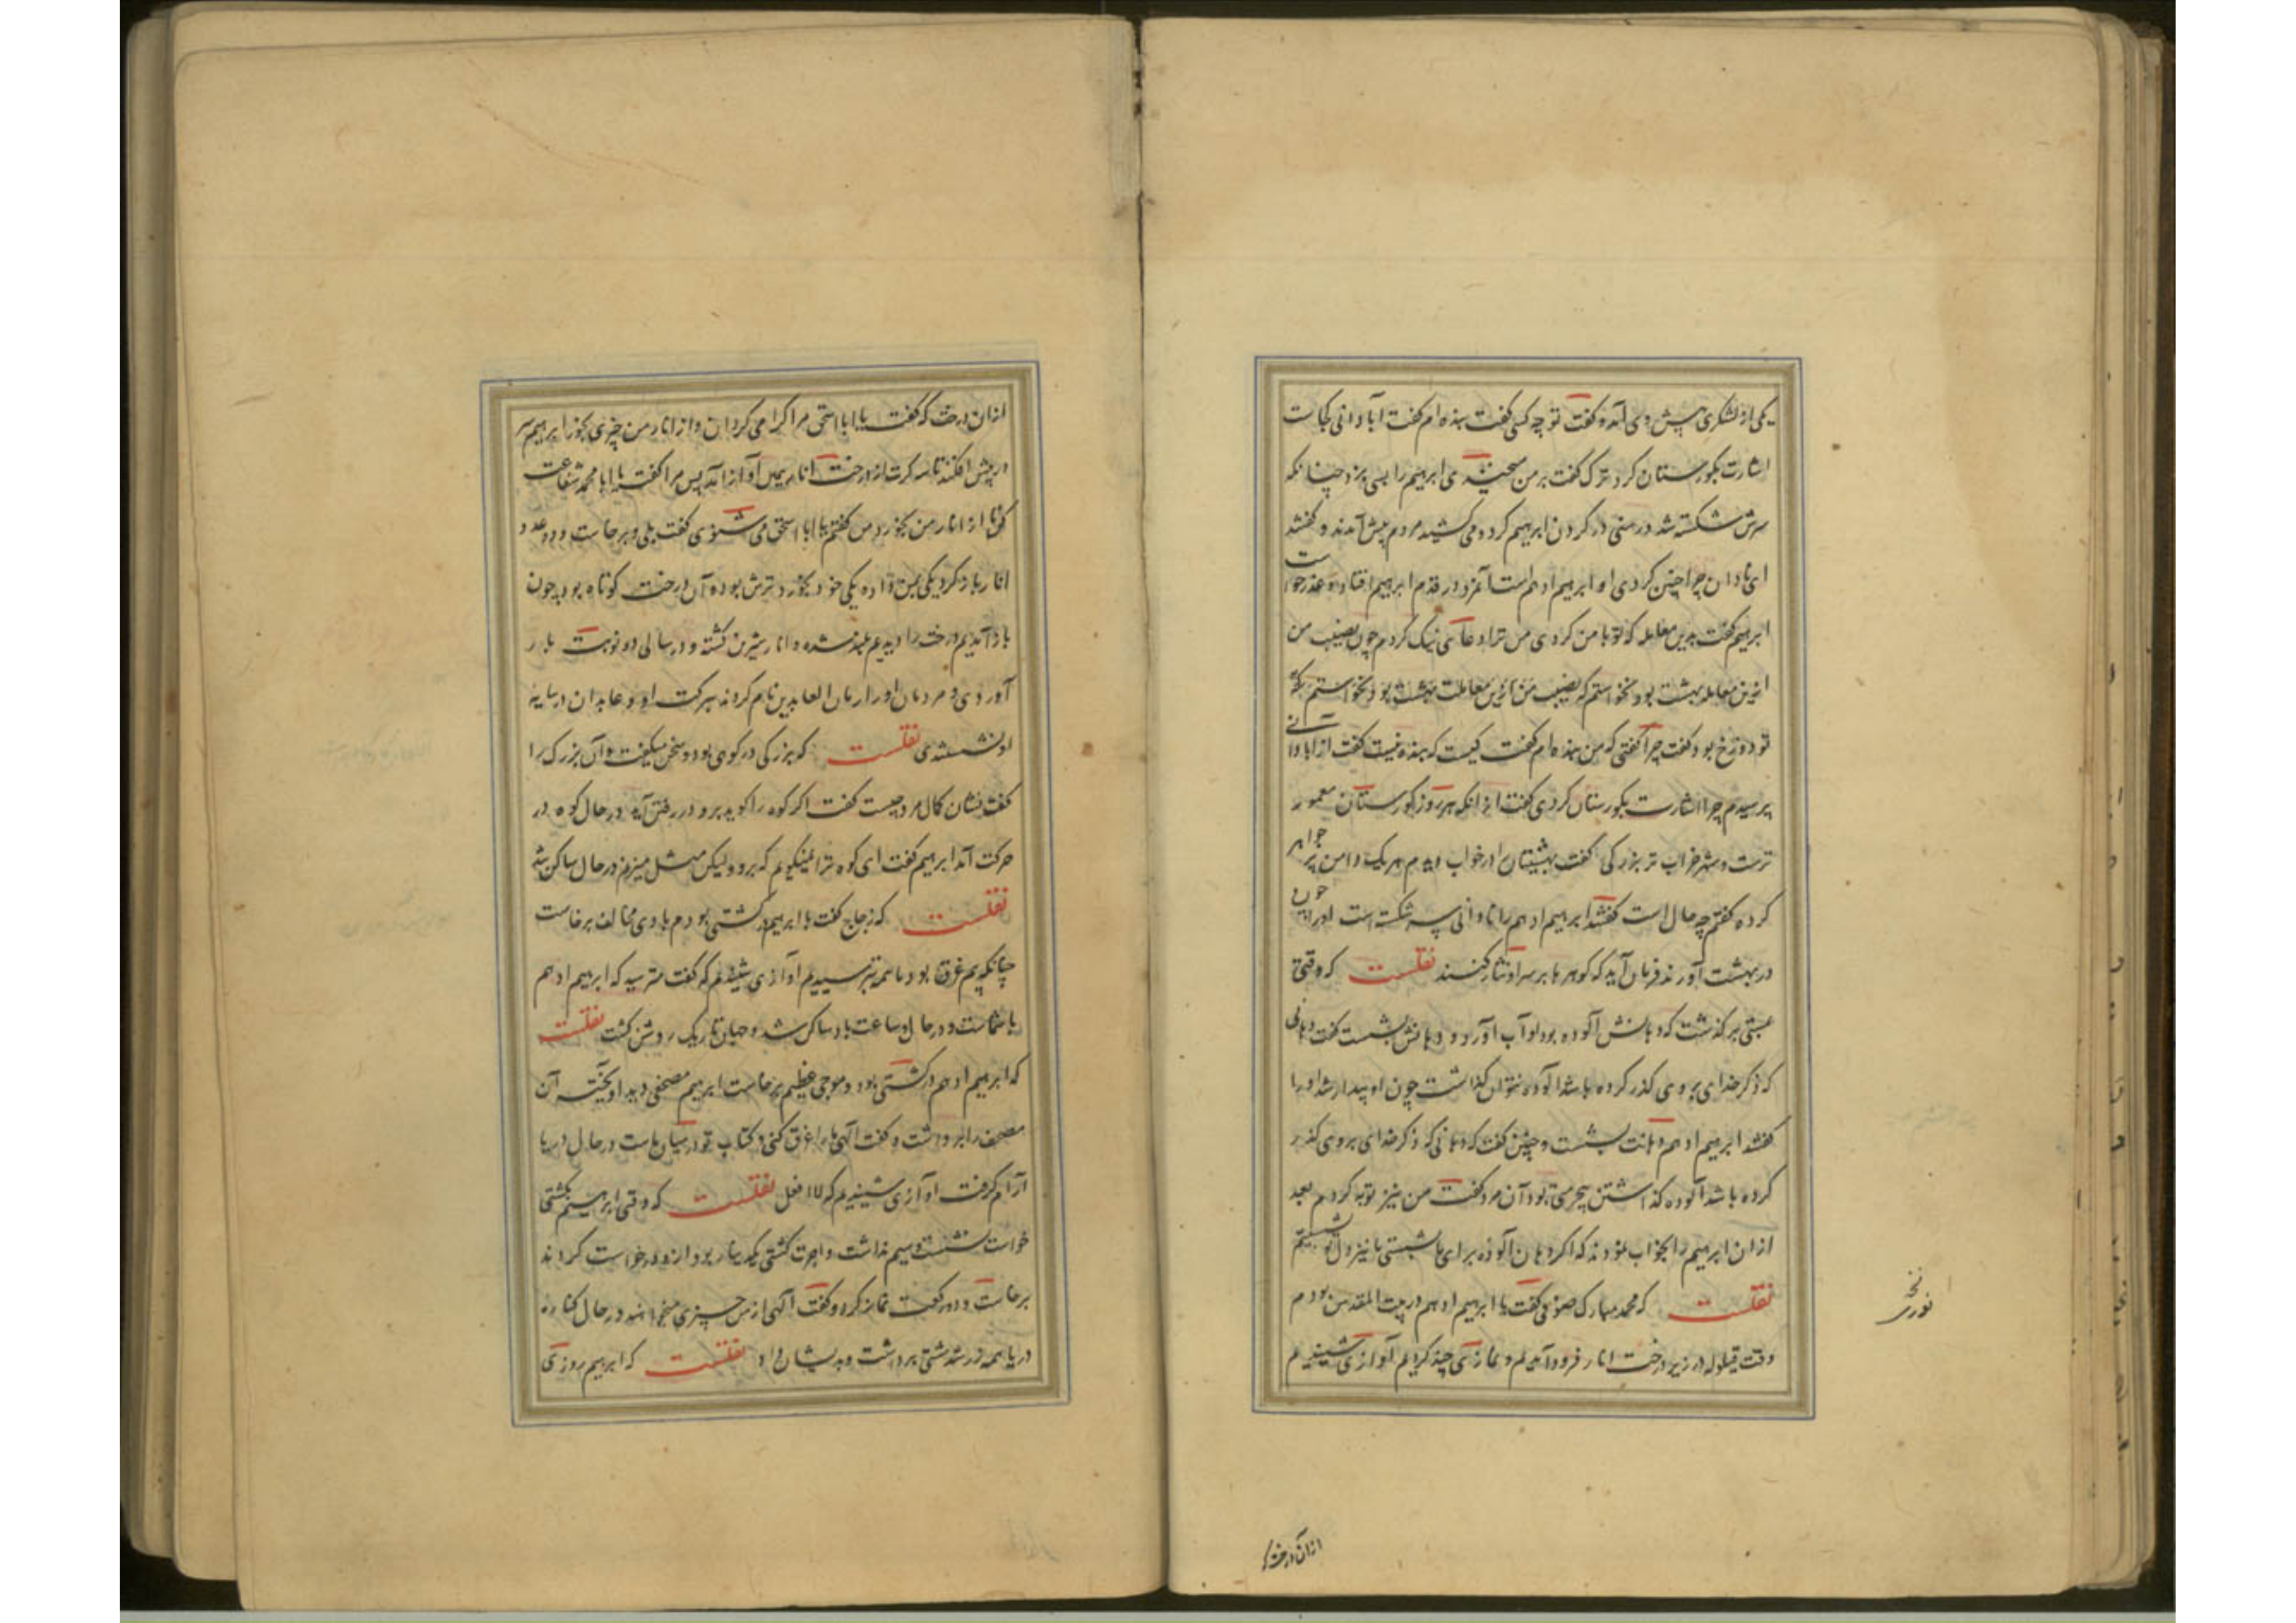 یکی از لشکری پیش وی آمد و گفت تو چه کسی گفت بنده ام گفت آبادانی کجاست
اشارت بگورستان کرد ترک گفت بر من سخریه می ابراهیم را بسی بزد چنانکه
سرش شکسته شد و رسنی در گردن ابراهیم کرد و می کشید مردم پیش آمدند و گفتند
ای نادان چرا چنین کردی او ابراهیم ادهم است آنمرد در قدم ابراهیم افتاد و عذر خواست
ابراهیم گفت بدین معامله که تو با من کردی من ترا دعای نیک کردم چون نصیب من
ازین معامله بهشت بود نخواستم که نصیب
تو دوزخ بود گفت چرا گفتی که من بنده ام گفت کیست که بنده نیست گفت از آبادانی
پرسیدم چرا اشارت بگورستان کردی گفت از انکه هر روز گورستان معمور
ترست و شهر خراب تر بزرگی گفت بهشتیان را در خواب دیدم هر یک دامن پر جواهر
کرده گفتم چه حال است گفتند ابراهیم ادهم را نادانی سر شکسته است او را چون
در بهشت آورند فرمان آید که گوهرها بر سر او نثار کنند نقلست که وقتی
بمستی بر گذشت که دهانش آلوده بود او آب آورد و دهانش بشست گفت دهانی
که ذکر خدای بر وی گذر کرده باشد آلوده نتوان گذاشت چون او بیدار شد او را
گفتند ابراهیم ادهم دهانت بشست و چنین گفت که دهانی که ذکر خدای بر وی گذر
کرده باشد آلوده گذاشتن بیحرمتی بود آن مرد گفت من نیز توبه کردم بعد
ازان ابراهیم را بخواب نمودند که اگر دهان آلوده برای ما شستی ما نیز دل تو شستیم
نقلست که محمد مبارک صوفی گفت با ابراهیم ادهم در بیت المقدس بودم
وقت قیلوله در زیر درخت انار فرود آمدیم و نمازی چند کردیم آوازی شنیدیم
ازان درخت که
ازان درخت که گفت یا ابا اسحق مرا گرامی گردان و از انار من چیزی بخور ابراهیم سر
در پیش افکند تا سه کرت از درخت انار همین آواز آمد پس مرا گفت یا ابا محمد شفاعت
کن تا از انار من بخورد من گفتم یا ابا اسحق می شنوی گفت بلی و برخاست و دو عدد
انار باز کرد یکی بمن داد و یکی خود بخورد ترش بود و آن درخت کوتاه بود چون
باز آمدیم درخت را دیدیم بلند شده و انار شیرین گشته و در سالی دو نوبت بار
آوردی و مردمان او را رمان العابدین نام کردند ببرکت او و عابدان در سایه
او نشستندی نقلست که بزرگی در کوهی بود و سخن میگفت و آن بزرگ را
گفت نشان کمال مرد چیست گفت اگر کوه را گوید برو در رفتن آید در حال کوه در
حرکت آمد ابراهیم گفت ای کوه ترا نمیگویم که برو ولیکن مثل میزنم در حال ساکن شد
نقلست که زجاج گفت با ابراهیم در کشتی بودم بادی مخالف برخاست
چنانکه بیم غرق بود ما همه بترسیدیم آوازی شنیدیم که گفت مترسید که ابراهیم ادهم
با شماست و در حال و ساعت باد ساکن شد و جهان تاریک روشن گشت نقلست
که ابراهیم ادهم در کشتی بود و موجی عظیم برخاست ابراهیم مصحفی دید آویخته آن
مصحف را برداشت و گفت الهی ما را غرق کنی و کتاب تو در میان ماست در حال دریا
آرام گرفت آوازی شنیدیم که لا افعل نقلست که وقتی ابراهیم بکشتی
خواست نشست و سیم نداشت و اجرت کشتی یکدینار بود از وی درخواست کردند
برخاست و دو رکعت نماز کرد و گفت الهی از من چیزی میخواهند در حال کناره
دریا همه زر شد مشتی برداشت و بدیشان داد نقلست که ابراهیم روزی